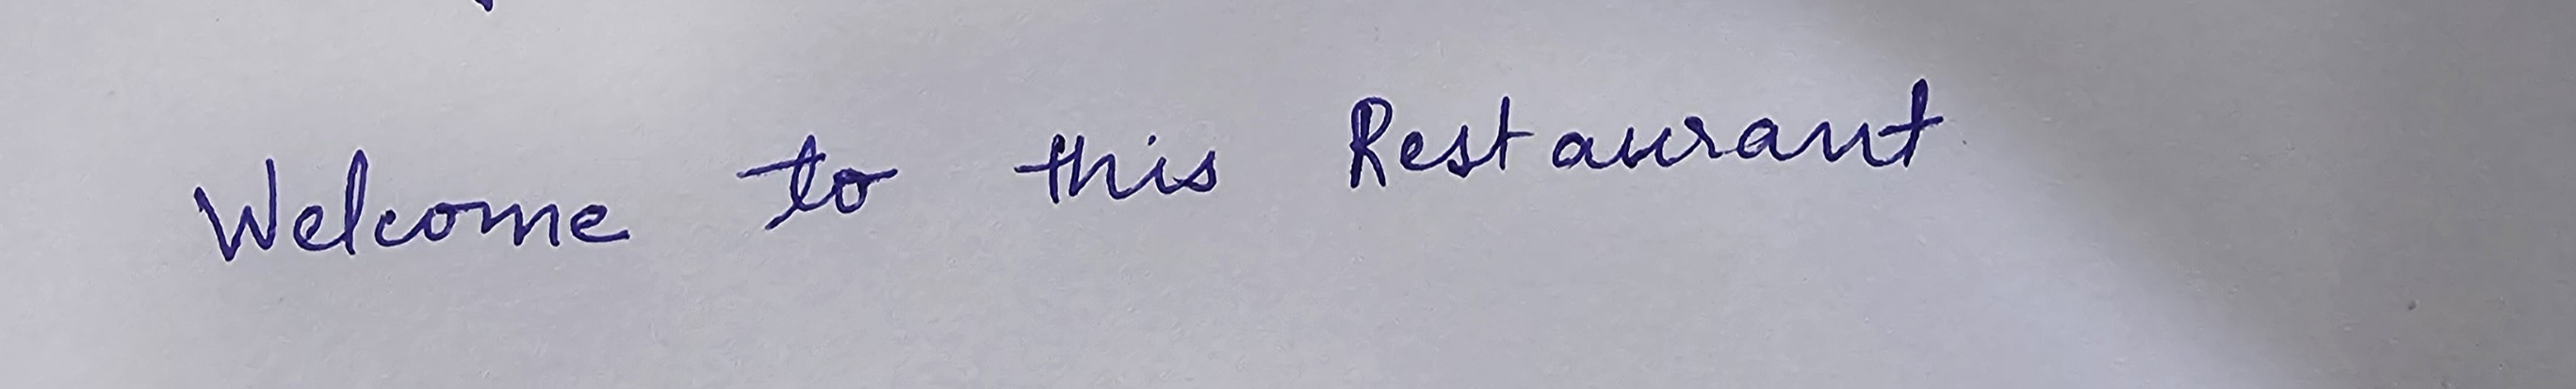 Welcome to this Restaurant